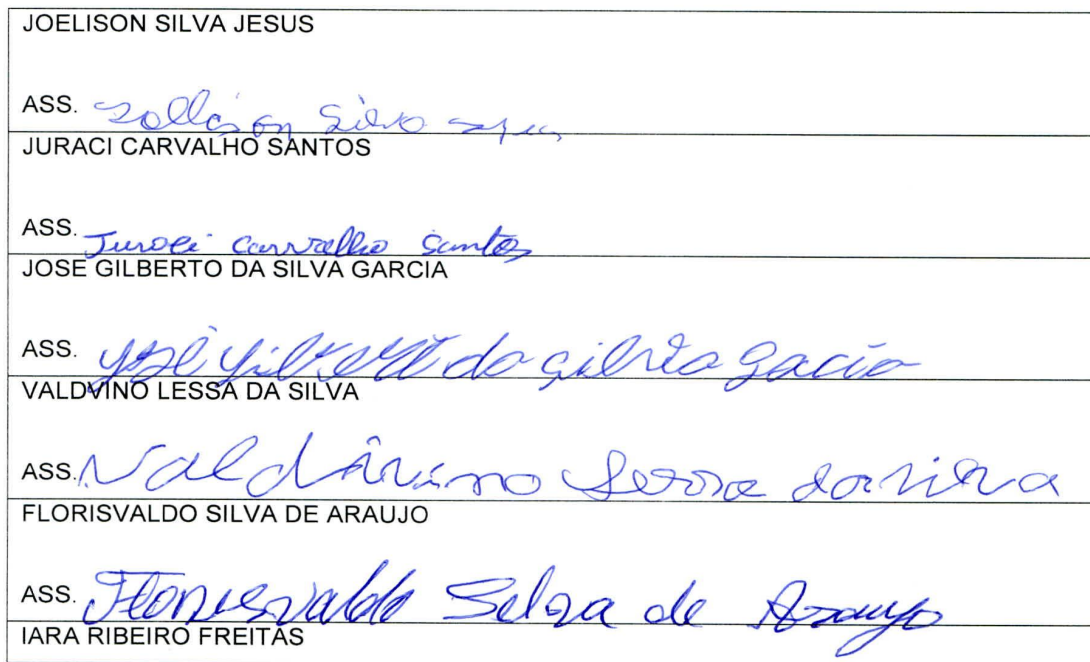 JOELISON SILVA JESUS
ASS. Silvo
JURACI CARVALHO SANTOS
ASS. Juraci Carvalho Santos
JOSE GILBERTO DA SILVA GARCIA
ASS. da Gacia
VALDVINO LESSA DA SILVA
ASS. Valdivino da silva
FLORISVALDO SILVA DE ARAUJO
ASS. Florisvaldo Silva de Araujo
IARA RIBEIRO FREITAS